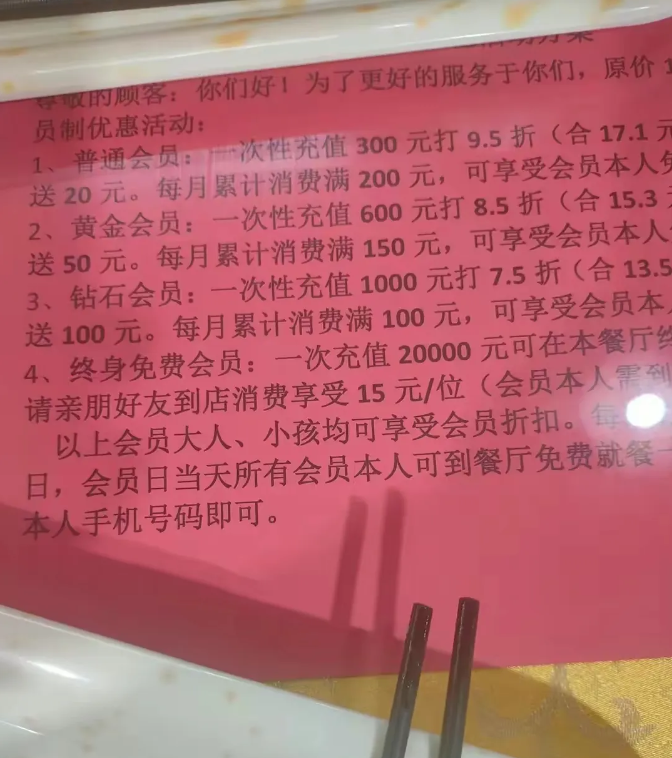 尊敬的顾客：你们好！为了更好的服务于你们，原价
员制优惠活动：
1、普通会员：一次性充值 300 元打 9.5 折（合 17.1 元
送 20 元。每月累计消费满 200 元，可享受会员本人免
2、黄金会员：一次性充值 600 元打 8.5 折（合 15.3
送 50 元。每月累计消费满 150 元，可享受会员本人
3、钻石会员：一次性充值 1000 元打 7.5 折（合 13.5
送 100 元。每月累计消费满 100 元，可享受会员本
4、终身免费会员：一次充值 20000 元可在本餐厅终
请亲朋好友到店消费享受 15 元/位（会员本人需到
以上会员大人、小孩均可享受会员折扣。每
日，会员日当天所有会员本人可到餐厅免费就餐一
本人手机号码即可。